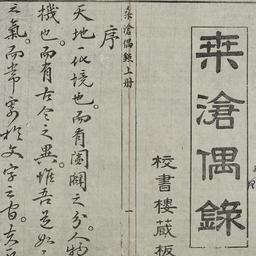 桒滄偶錄
校書樓藏板
桒滄偶錄上册
一
序
天地一化境也而有闔闢之分人物
機也而有古今之異惟吾
之氣而常寄於文字之